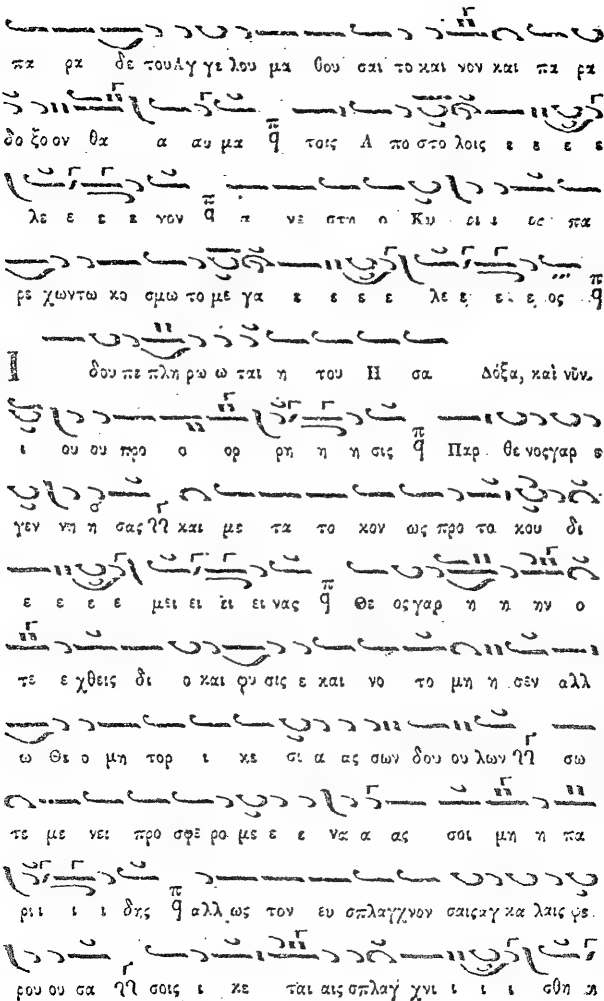 πα ρα δε του Αγ γε λου μα θου σαι το και νον και πα ρα
δο ξο ον θα α αυ μα π̈ q τοις Α πο στο λοις ε ε ε ε
λε ε ε ε νον π̈ q α νε στη ο Κυ ρι ι ος πα
ρε χων τω κο σμω το με γα ε ε ε ε λε ε ε ε ος π̈ q
Ι δου πε πλη ρω ω ται η του Η σα Δόξα, καὶ νῦν.
ι ου ου προ ο ορ ρη η η σις π̈ q Παρ θε νος γαρ ε
γεν νη η σας και με τα το κον ως προ το κου δι
ε ε ε ε μει ει ει ει νας π̈ q Θε ος γαρ η η ην ο
τε ε χθεις δι ο και φυ σις ε και νο το μη η σεν αλλ
ω Θε ο μη τορ ι κε σι α ας σων δου ου λων σω
τε με νει προ σφε ρο με ε ε να α ας σοι μη η πα
ρι ι ι ι δης π̈ q αλλ ως τον ευ σπλαγχνον σαις αγ κα λαις φε
ρου ου σα σοις ι κε ται αις σπλαγ χνι ι ι ι σθη η